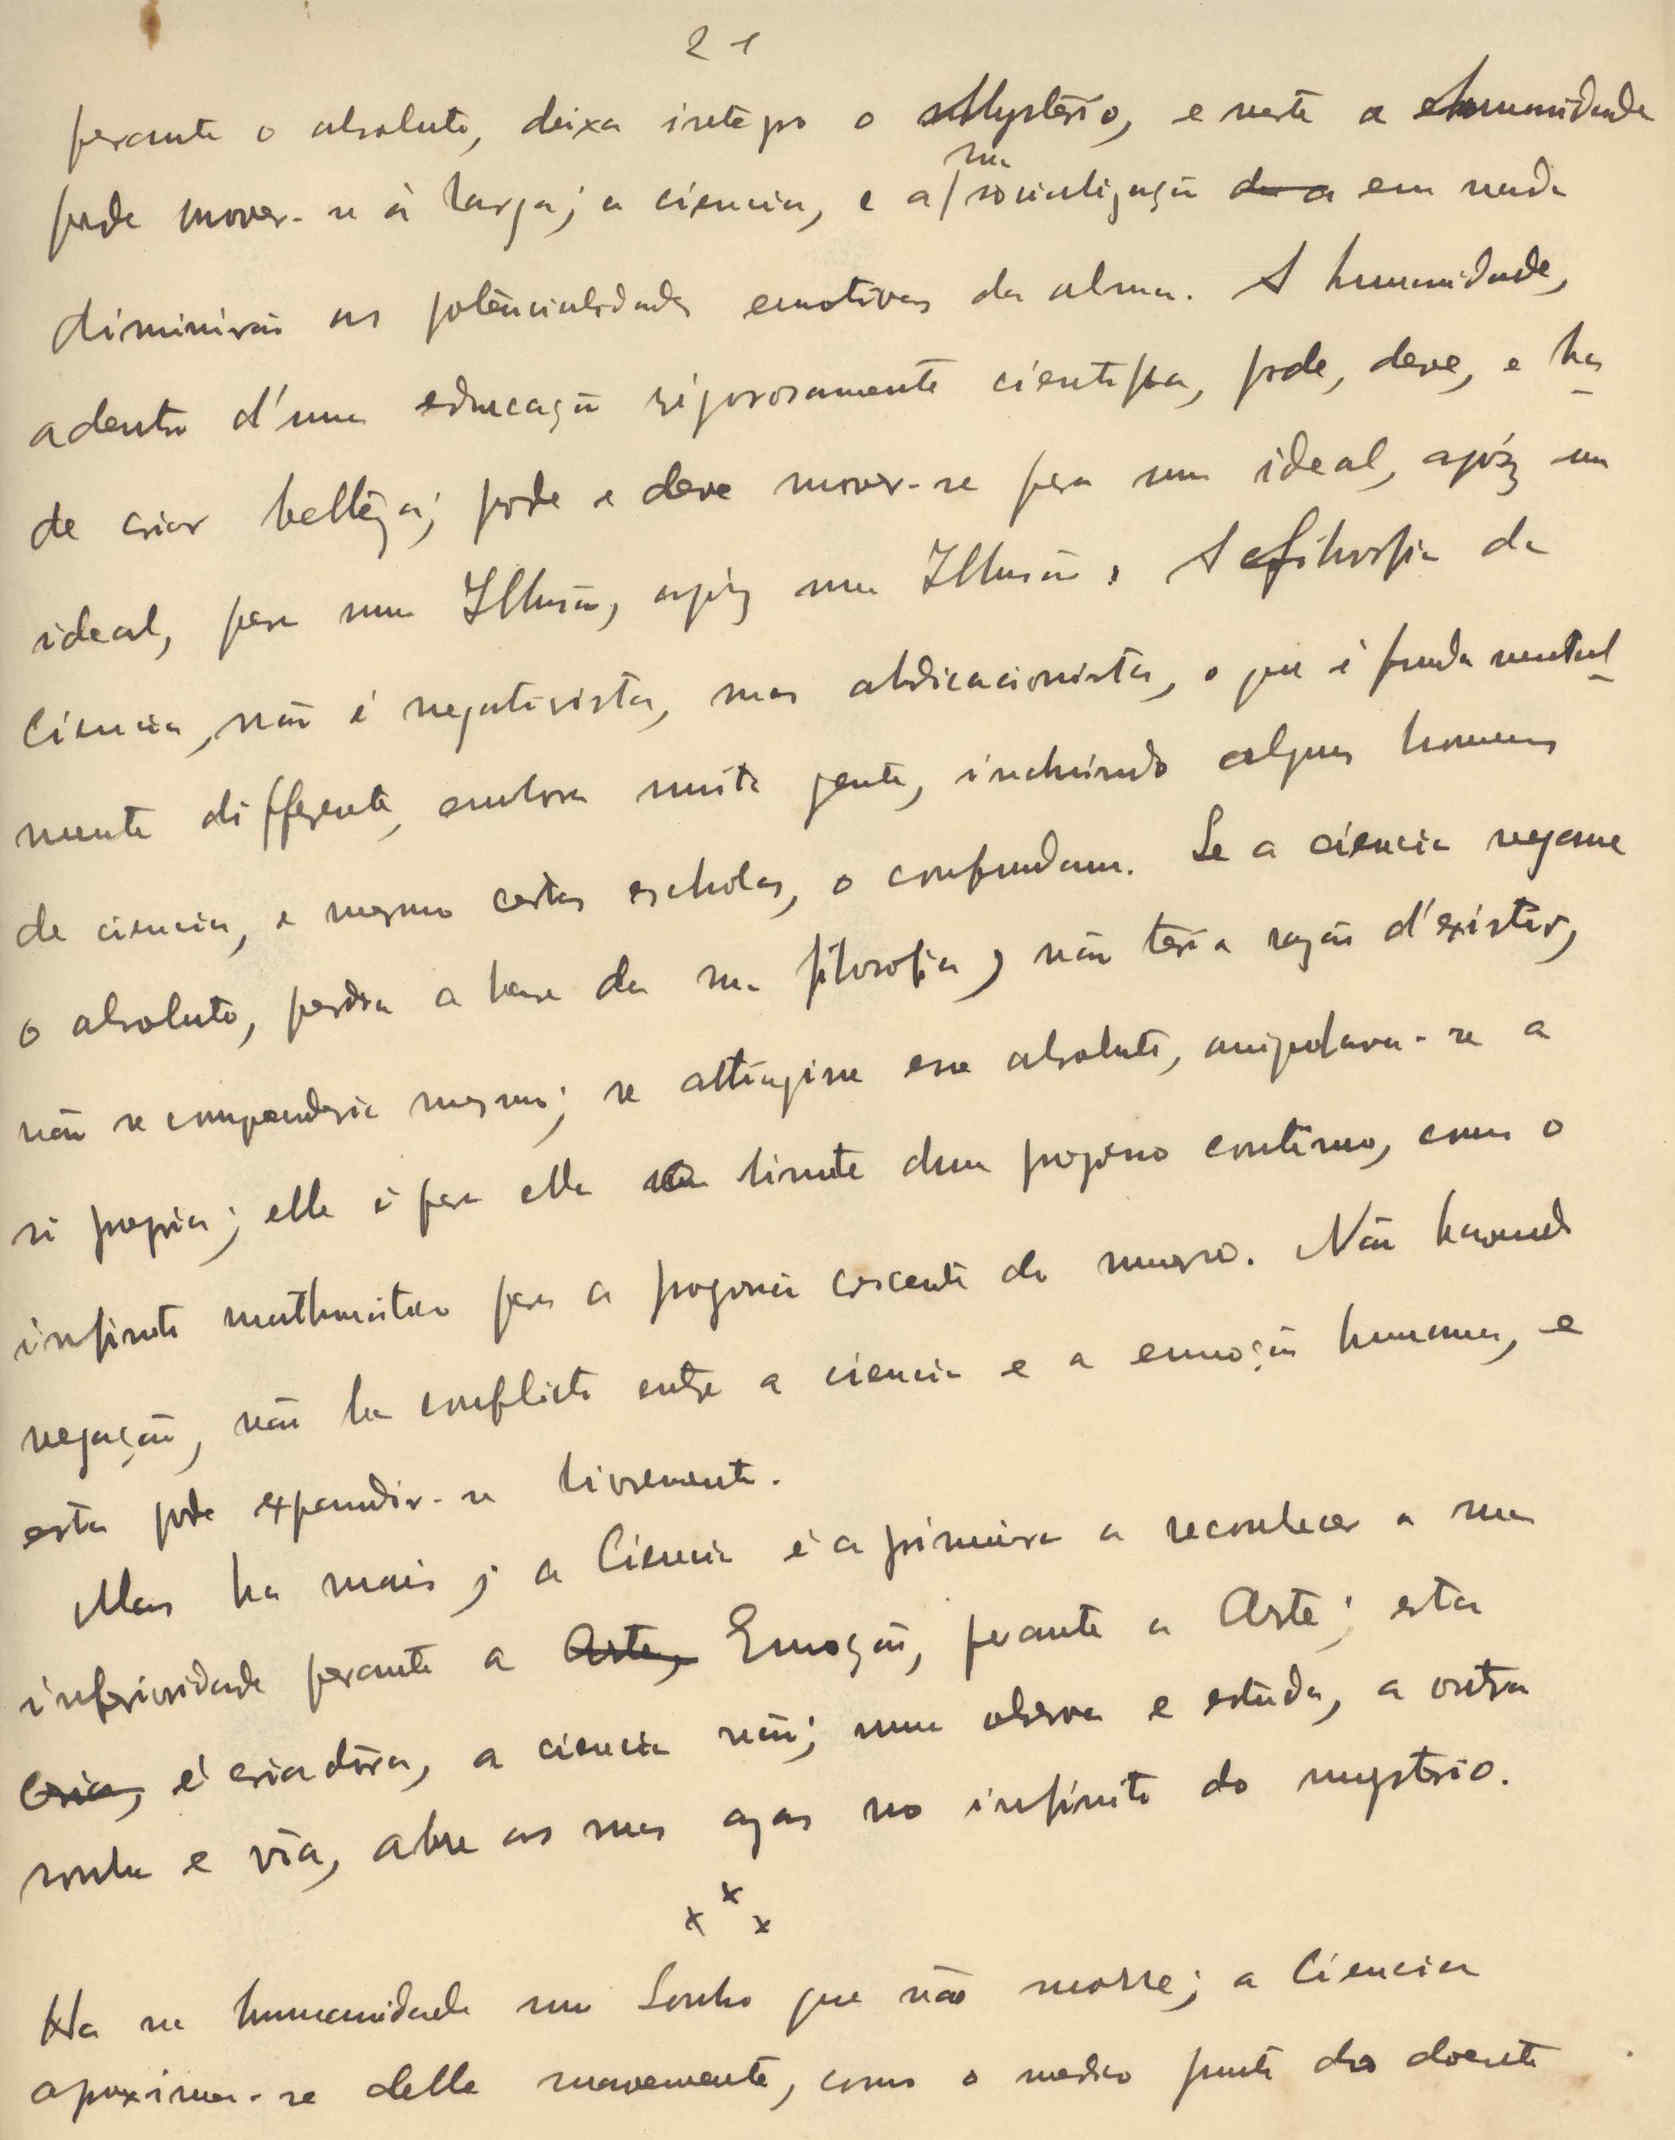 21
perante o absoluto, deixa intégro o Mysterio, e neste a humanidade
pode mover-se á larga; a ciencia, e a sua socialização em nada
diminuirão as potêncialidades emotivas da alma. A humanidade,
adentro d'uma educação rigorosamente cientifica, pode, deve, e ha-
de criar bellêza; pode e deve mover-se para um ideal, após um
ideal, para uma Illusão, após uma Illusão. A filosofia da
Ciencia, não é negativista, mas abdicacionista, o que é fundamental-
mente differente, embora muita gente, incluindo alguns homens
de ciencia, e mesmo certas escholas, o confundam. Se a ciencia negasse
o absoluto, perdia a base da sua filosofia, não teria razão d'existir,
não se comprenderia mesmo; se attingisse esse absoluto, aniquilava-se a
si propria; elle é para ella o limite dum progresso continuo, como o
infinito mathematico para a progressão crescente do numero. Não havendo
negação, não ha conflicto entre a ciencia e a emoção humana, e
esta pode expandir-se livremente.
Mas ha mais; a Ciencia é a primeira a reconhecer a sua
inferioridade perante a Arte, Emoção, perante a Arte; esta
Cria, é criadôra, a ciencia não; uma observa e estuda, a outra
sonha e vôa, abre as suas azas no infinito do mysterio.
x x x
Ha na humanidade um Sonho que não morre; a Ciencia
aproxima-se delle suavemente, como o medico junto do doente